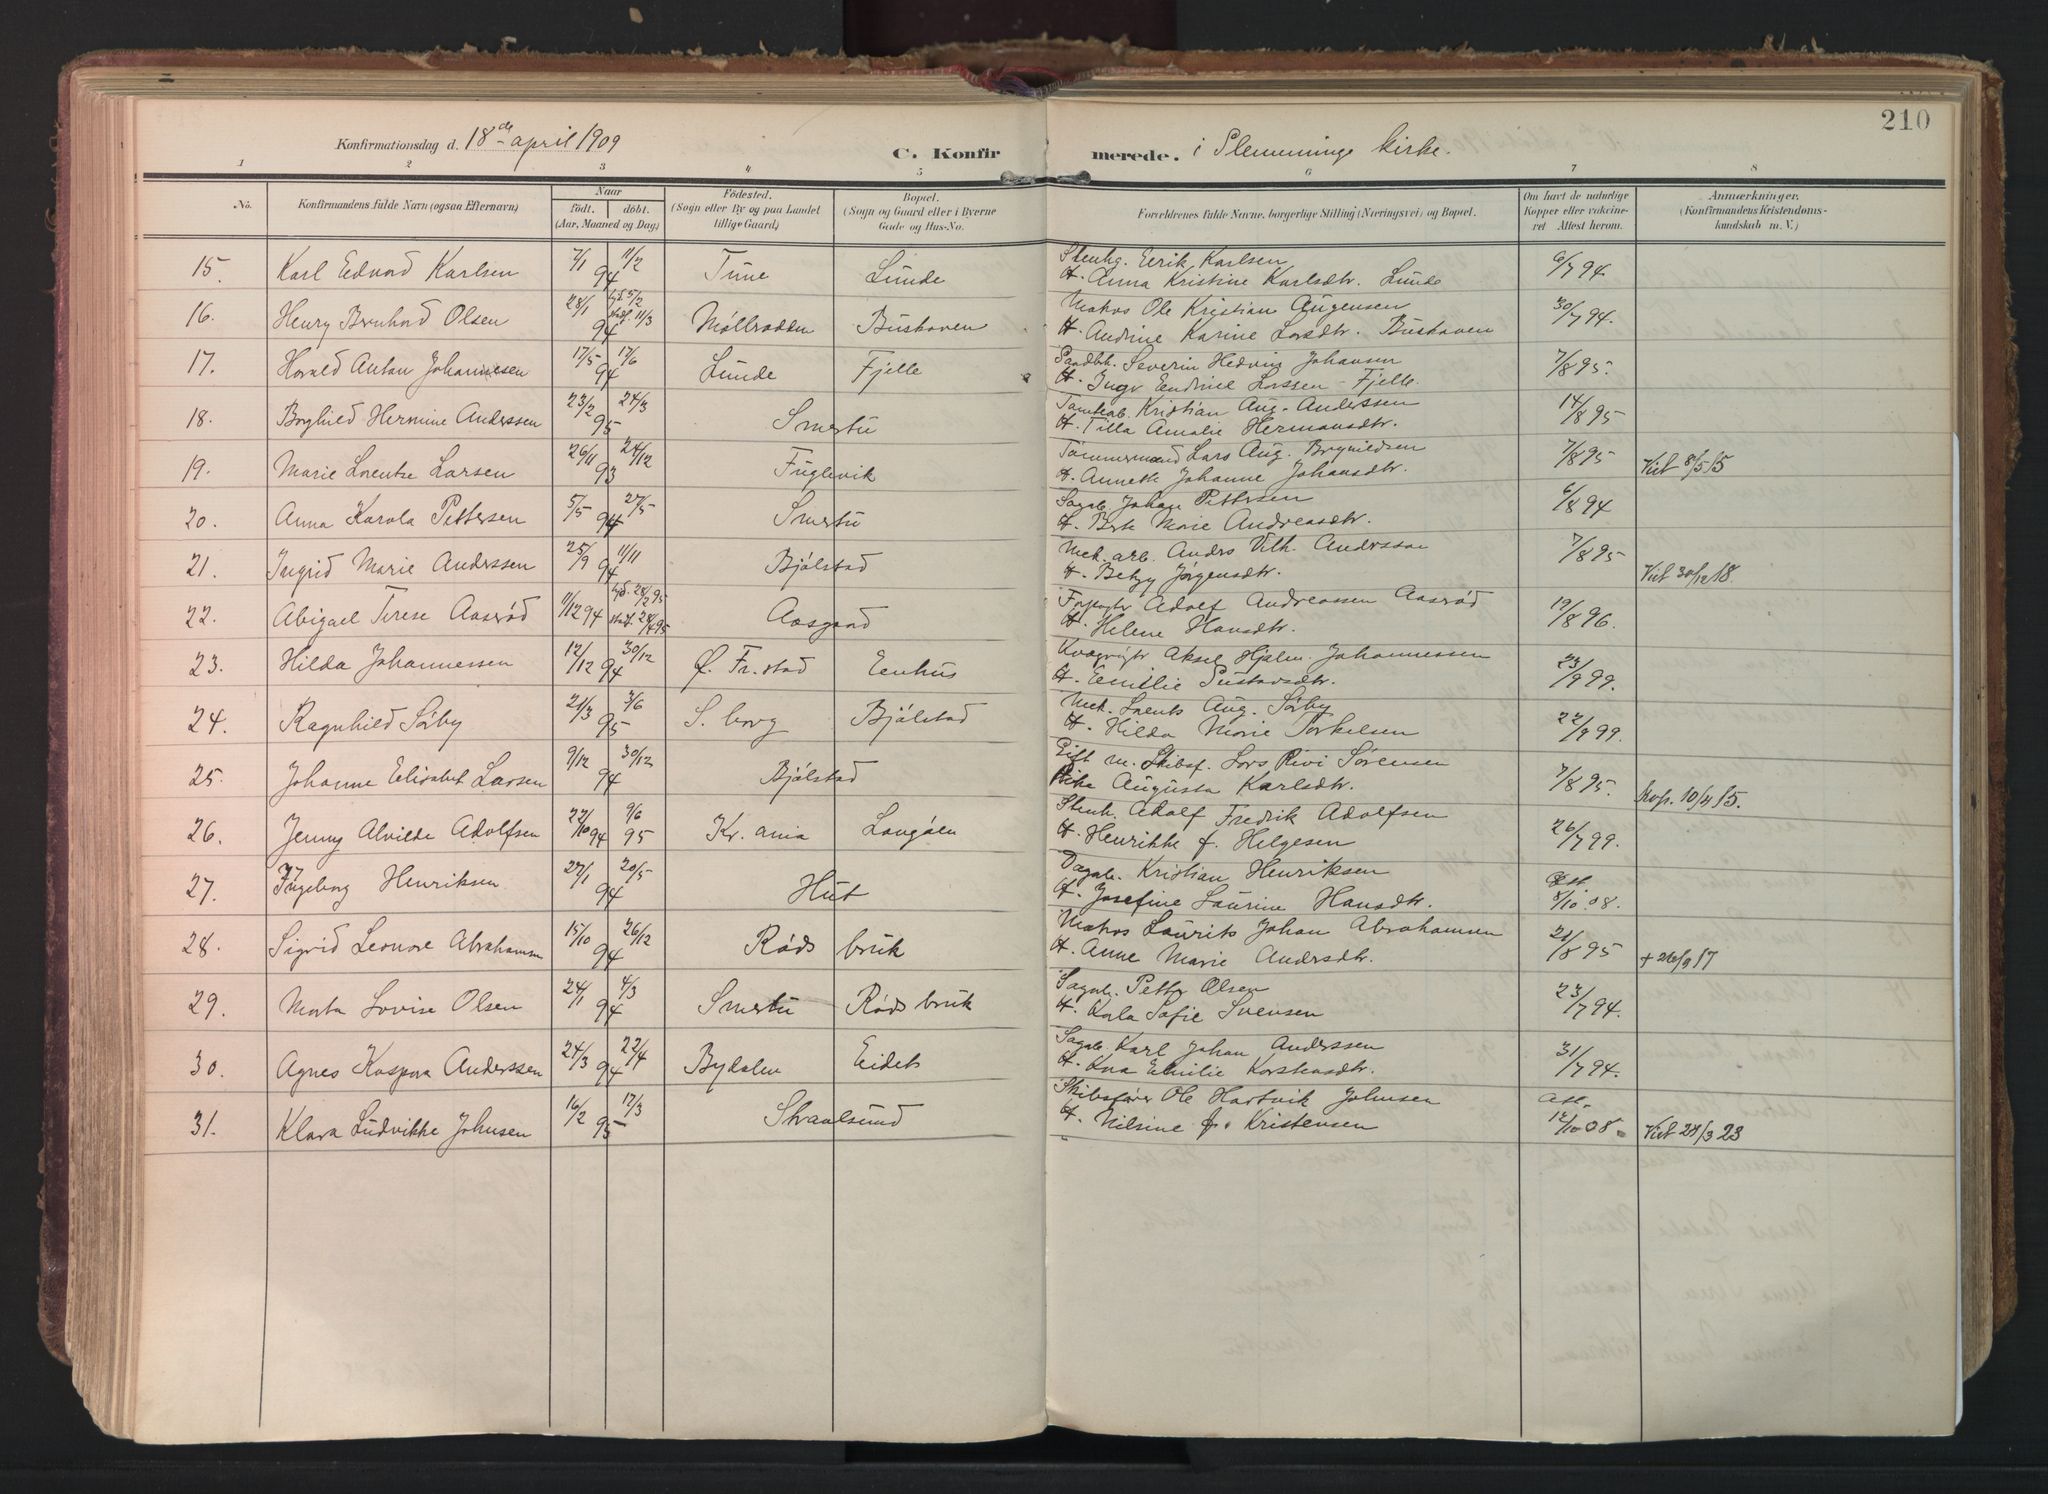 210
Konfirmationsdag d. 18de april 1909
C. Konfirmerede. i Slemminge kirke.
1 2 3 4 5 6 7 8
No. Konfirmandens fulde Navn (ogsaa Efternavn) Naar født. døbt. (Aar, Maaned og Dag) Fødested. (Sogn eller By og paa Landet tillige Gaard) Bopæl. (Sogn og Gaard eller i Byerne Gade og Hus-No. Forældrenes fulde Navne, borgerlige Stilling (Næringsvei) og Bopæl. Om havt de naturlige Kopper eller vakcineret Attest herom. Anmærkninger. (Konfirmandens Kristendomskundskab m. V.)
15. Karl Edvard Karlsen 7/1 11/2 94 Tune Lunde Stenhg. Eerik Karlsen
H. Anna Kristine Karlsdtr. Lunde 6/7 94
16. Henry Bernhard Olsen 28/1 94 5/2 11/3 Møllrodden Buskoven Matros Ole Kristian Augensen
H. Andrine Karine Larsdtr. Buskoven 30/7 94.
17. Harald Anton Johannesen 17/5 17/6 94 Lunde Fjelle Severin Hedvin Johansen
H. Inga Larssen - Fjelle. 7/8 95.
18. Borghild Hermine Anderssen 23/2 24/3 95 Smertu Tomtearb. Kristian Aug. Anderssen
H. Tilla Amalie Hermansdtr. 14/8 95
19. Marie Lorentse Larsen 26/11 24/12 93 Fuglevik Tømmermand Lars Aug. Brynildsen
H. Annette Johanne Johansdtr. 7/8 95 Viet 8/5 15
20. Anna Karola Pettersen 5/5 27/5 94 Smertu Sagarb. Johan Pettersen
H. Berte Marie Andreasdtr. 6/8 94
21. Ingrid Marie Anderssen 25/9 11/11 94 Bjølstad Mek. arb. Anders Vilh. Anderssen
H. Betzy Jørgensdtr. 7/8 95 Viet 30/12 18.
22. Abigael Terese Aasrød 11/12 94 28/2 95 28/4 95 Aasgaard Forpagter Adolf Andreassen Aasrød
H. Helene Hansdtr. 19/8 96.
23. Hilda Johannessen 12/12 30/12 94 Ø. Fr.stad Eenhus Aksel Hjalm. Johannessen
H. Emilie Gustavsdtr. 23/9 99.
24. Ragnhild Sørby 21/3 3/6 95 S. borg Bjølstad Mek. Lorents Aug. Sørby
H. Hilda Marie Torkelsen 22/9 99.
25. Johanne Elisabet Larsen 9/12 30/12 94 Bjølstad Gift m. Skibsf. Lars Rivi Sørensen
Augusta Karlsdtr. 7/8 95. Kop. 10/4 15.
26. Jenny Alvilde Adolfsen 22/10 94 9/6 95 Kr.ania Langøen Stenh. Adolf Fredrik Adolfsen
H. Henrikke f. Helgesen 26/7 99.
27. Ingeborg Henriksen 27/1 20/5 94 Hut Dagarb. Kristian Henriksen
H. Josefine Laurine Hansdtr. Att. 8/10 08.
28. Sigrid Leonore Abrahamsen 15/10 26/12 94 Røds bruk Matros Laurits Johan Abrahamsen
H. Anne Marie Andersdtr. 21/8 95 + 26/9 17
29. Marta Lovise Olsen 24/1 4/3 94 Smertu Røds bruk Sagarb. Petter Olsen
H. Karla Sofie Svensen 23/7 94.
30. Agnes Kaspara Anderssen 24/3 22/4 94 Bydalen Eidet Sagarb. Karl Johan Anderssen
H. Eva Emilie Karstensdtr. 31/7 94.
31. Klara Ludvikke Johnsen 16/2 17/3 95 Straalsund Skibsfører Ole Hartvik Johnsen
H. Nilsine f. Kristensen Att. 12/10 08. Viet 24/3 23